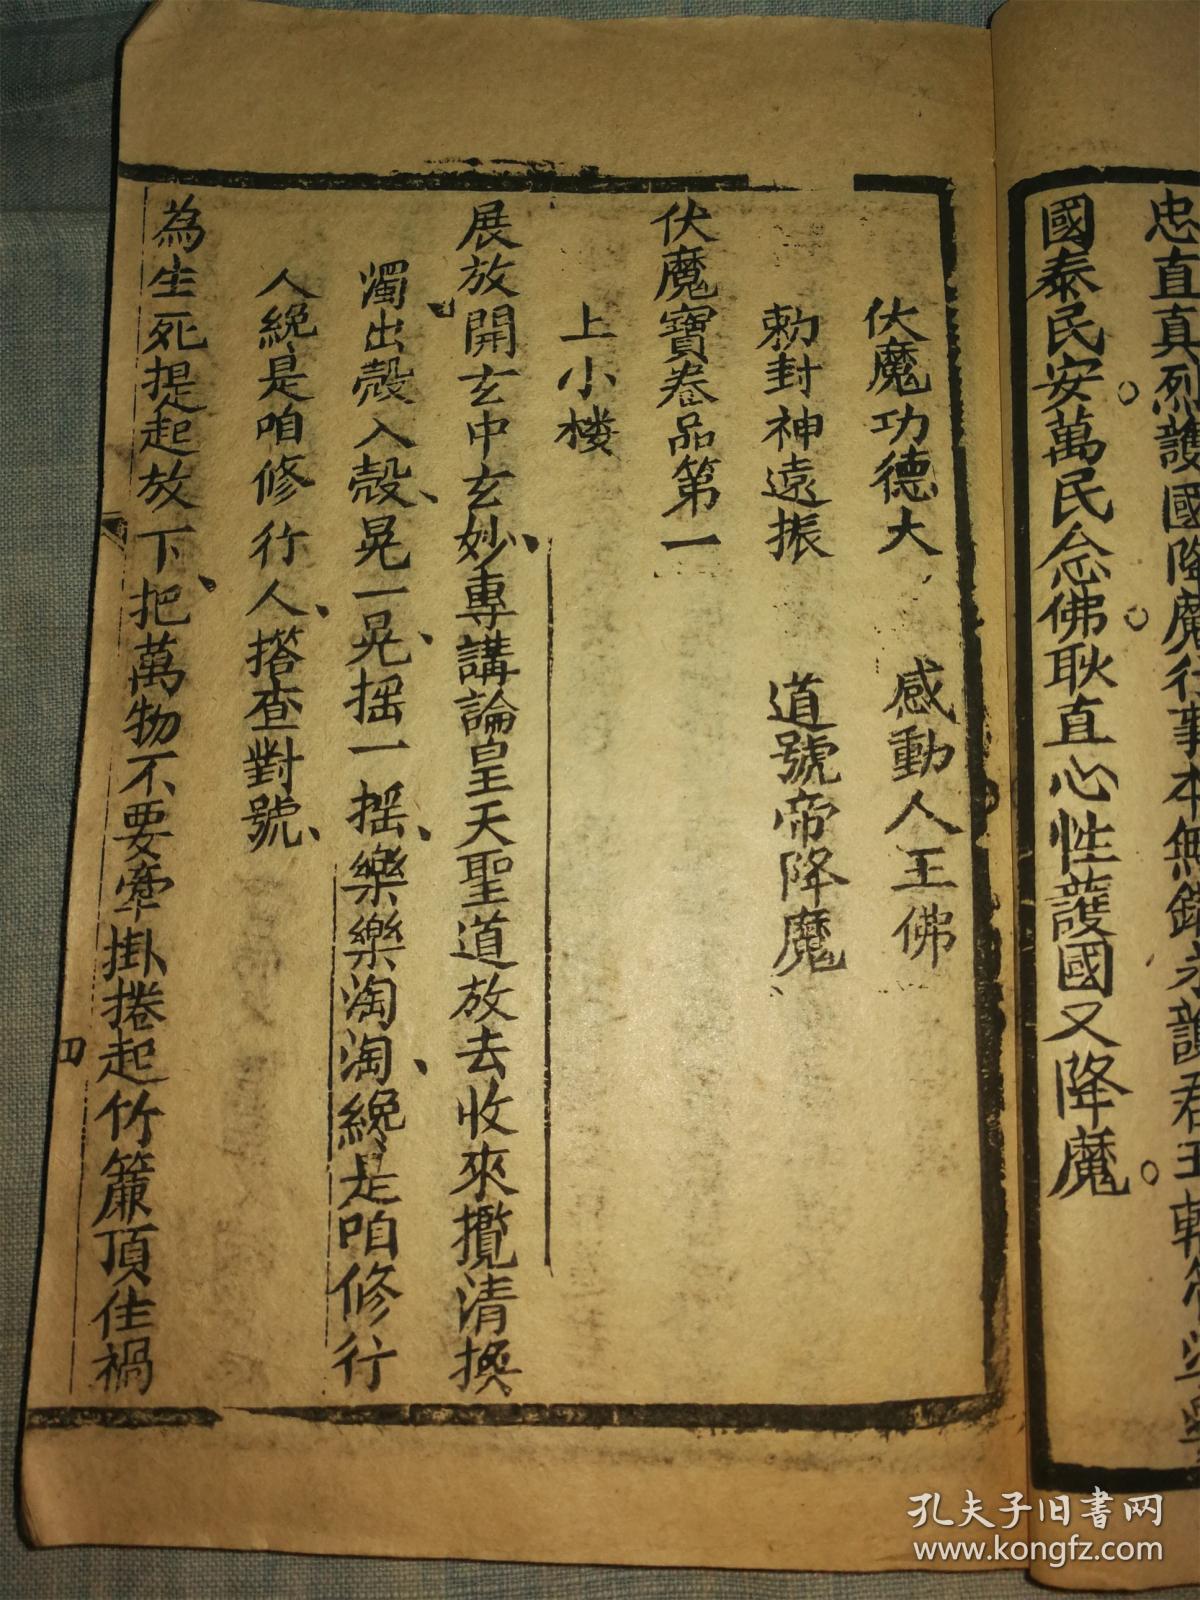 忠直真烈護國降魔行事本無錯永護君王
國泰民安萬民念佛耿直心性護國又降魔
伏魔功德大 感動人王佛
勅封神遠振 道號帝降魔
伏魔寶卷品第一
上小楼
展放開玄中玄妙專講論皇天聖道放去收來攬清換
濁出殼入殼晃一晃揺一揺樂樂淘淘纔是咱修行
人纔是咱修行人搭查對號
為生死提起放下把萬物不要牽掛捲起竹簾頂住禍
四
孔夫子旧书网
www.kongfz.com